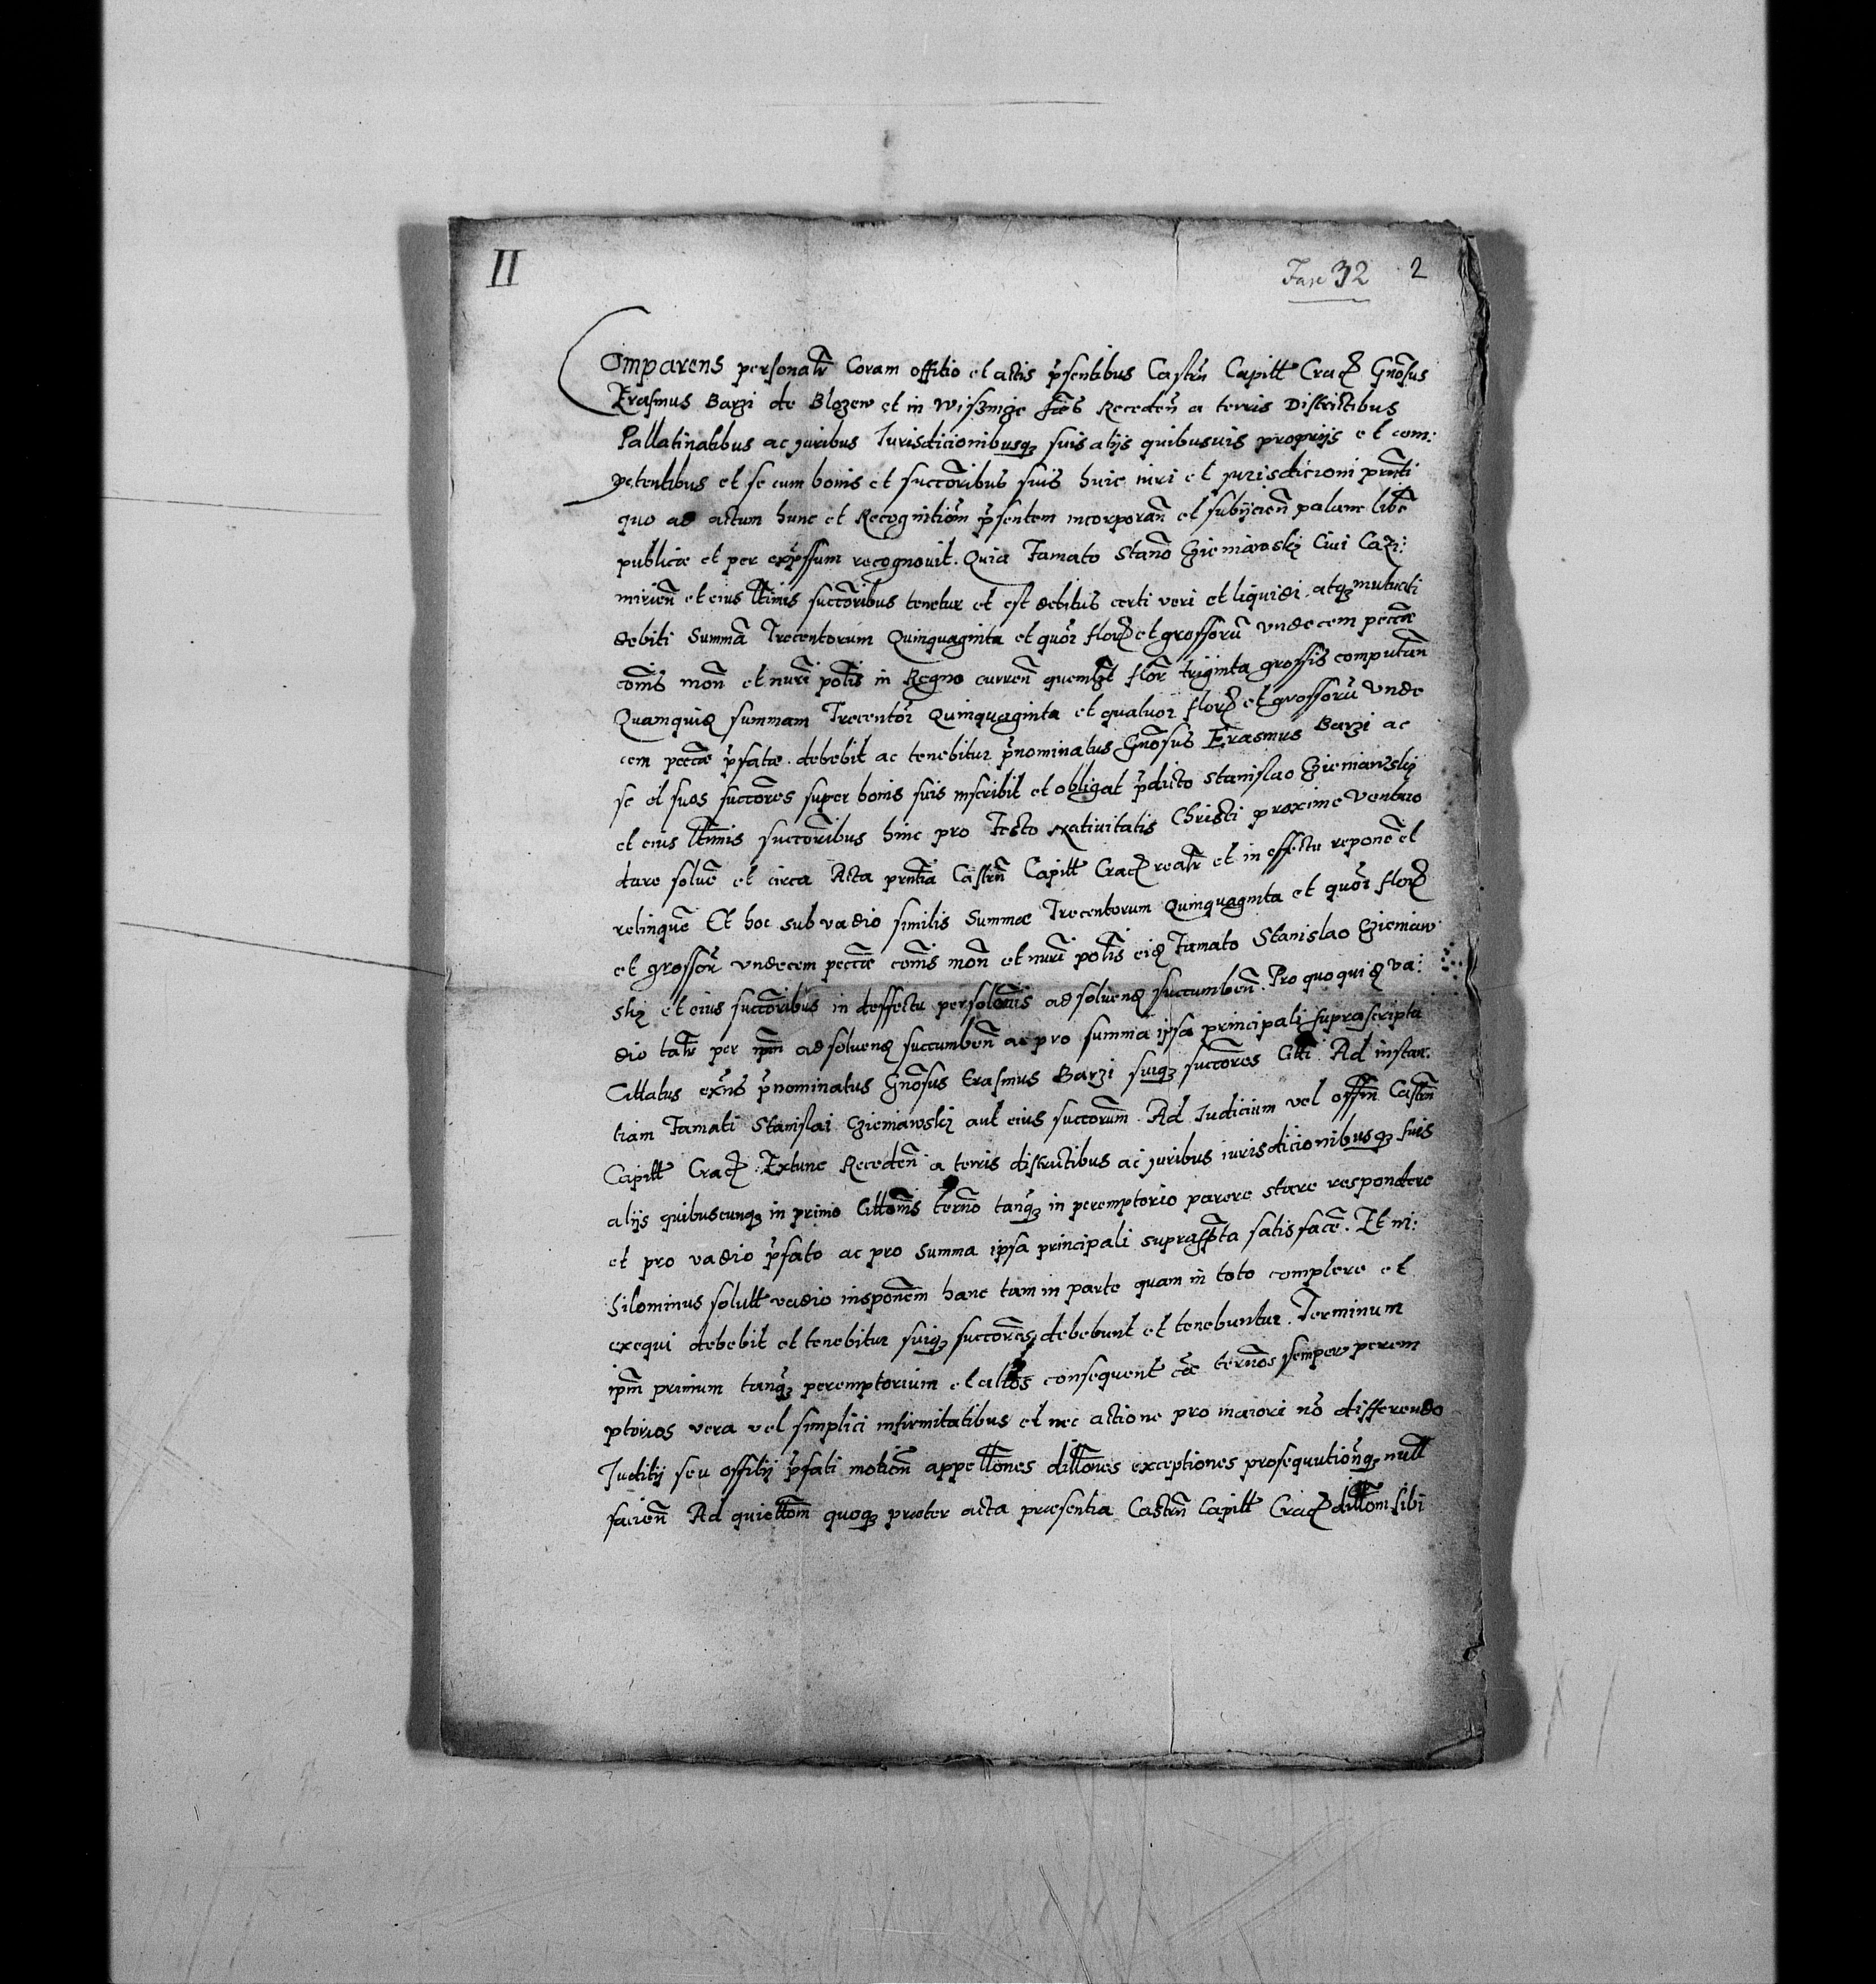 II
Fasc 32 2
Comparens personatr Coram offitio et actis pnsentibus Castrn Capitt Crac Gnosus
Erasmus Barzi de Blozew et in Receden a terris Districtibus
Pallatinatibus ac Juribus Jurisdicionibusq suis alijs quibusuis proprijs et com:
petentibus et se cum bonis et succoribus suis huic iuri et jurisdicioni prnti
quo ad actum hunc et Recognitiom pnsentem incorporan et subijcien palam libe
publice et per expssum recognouit. Quia Famato Stano Ciui Cazi:
mirien et eius lttimis succoribus tenetur et est debitus certi veri et liquidi atq mutuati
debiti Summa Trecentorum Quinquaginta et quor flor et grossoru vndecem peccae
cois mon et nuri potis in Regno curren quemlzt flor triginta grossis computan
Quamquid summam Trecentor Quinquaginta et quatuor flor et grossoru vnde
cem peccae pfatae debebit ac tenebitur pnominatus Gnosus Erasmus Barzi ac
se et suos succores super bonis suis inscribit et obligat pdicto Stanislao
et eius lttimis succoribus hinc pro Festo Natiuitatis Christi proxime venturo
dare solue et circa Acta prntia Castrn Capitt Crac realr et in effectu repone et
relinque Et hoc sub vadio similis Summae Trecentorum Quinquaginta et quor flor
et grossor vndecem peccae cois mon et nuri potis eid Famato Stanislao
et eius succoribus in deffectu persolonis ad soluend succumben. Pro quo quid va:
dio talr per ipm ad soluend succumben ac pro summa ipsa principali suprascripta
Cittatus exns pnominatus Gnosus Erasmus Barzi suiq succores Citti Ad instan:
tiam Famati Stanislai aut eius succorum. Ad Iudicium vel offm Castrn
Capitt Crac Extunc Receden a terris districtibus ac juribus iurisdicionibusq suis
alijs quibuscunq in primo Cittonis terno tanq in peremptorio parere stare respondere
et pro vadio pfato ac pro summa ipsa principali suprascpta satisface. Et ni:
hilominus solutt vadio insponem hanc tam in parte quam in toto complere et
exequi debebit et tenebitur suiq succores debebunt et tenebuntur. Terminum
ipm primum tanq peremptorium et alios consequent ce ternos semper perem
ptorios vera vel simplici infirmitatibus et nec actione pro maiori no differendo
Juditij seu offitij pfati motion appellones dillones exceptiones prosequutionq null
facien Ad quiettom quoq praeter acta praesentia Castrn Capitt Crac dillom sibi